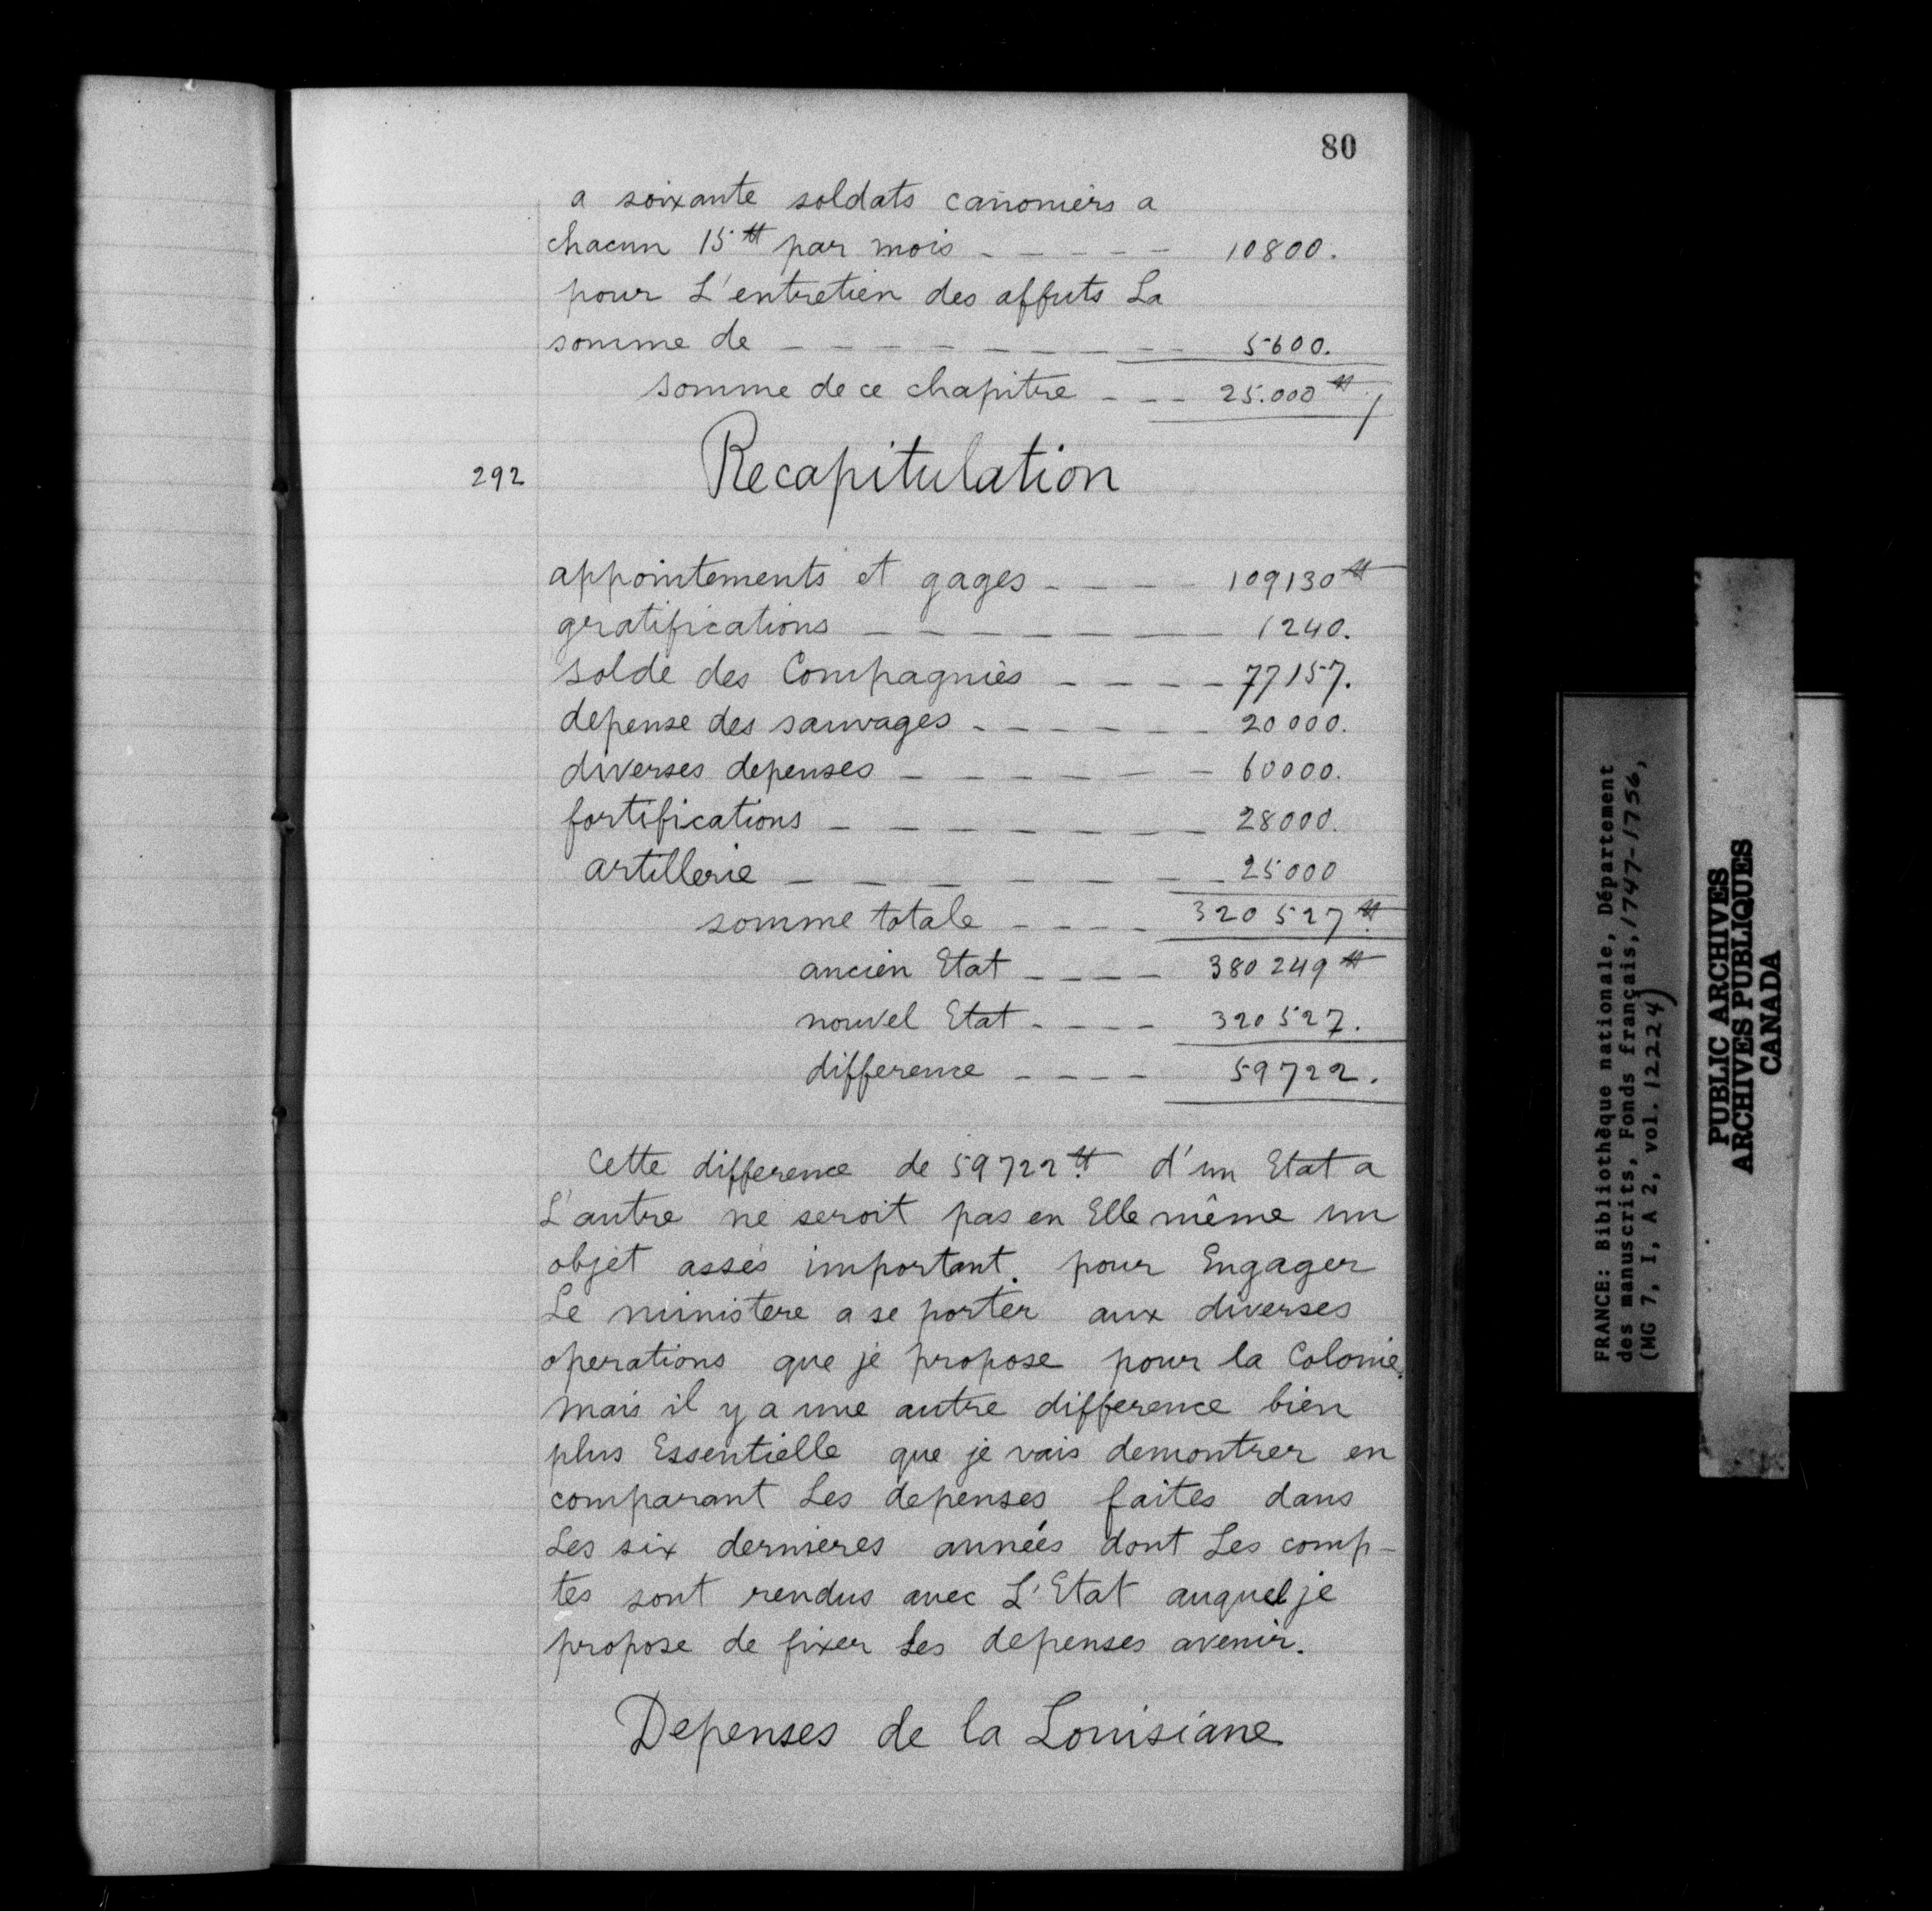 80
a soixante soldats canoniers a
chacun 15 ₶ par mois - - - - - 10800.
pour L'entretien des affuts La
somme de - - - - - - - - 5600.
somme de ce chapitre - - - 25.000 ₶
292 Recapitulation
appointements et gages - - - - 109130 ₶
gratifications - - - - - - - - 1240.
solde des Compagnies - - - - 77157.
depense des sauvages - - - - - - 20000.
diverses depenses - - - - - - 60000.
fortifications - - - - - - - 28000.
artillerie - - - - - - - 25000
somme totale - - - - 320527 ₶
ancien Etat - - - - 380249 ₶
nouvel Etat - - - - 320527.
difference - - - - 59722.
Cette difference de 59722 ₶ d'un Etat a
L'autre ne seroit pas en Elle même un
objetassés important. pour Engager
Le ministere a se porter aux diverses
operations que je propose pour la Colonie.
mais il y a une autre difference bien
plus Essentielle que je vais demontrer en
comparant Les depenses faites dans
Les six dernieres années dont Les comp-
tes sont rendus avec L'Etat auquel je
propose de fixer Les depenses avenir.
Depenses de la Louisiane
FRANCE: Bibliothèque nationale, Département
des manuscrits, Fonds français, 1747-1756,
(MG 7, I, A 2, vol. 12224)
PUBLIC ARCHIVES
ARCHIVES PUBLIQUES
CANADA